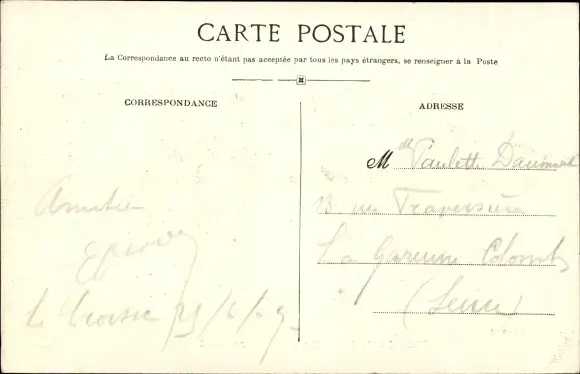 CARTE POSTALE
La Correspondance au recto n'étant pas acceptée par tous les pays étrangers, se renseigner à la Poste
CORRESPONDANCE
ADRESSE
Mlle Paulette
13 rue Traversière
La Garenne Colombes
(Seine)
Amitiés
Le Croisic